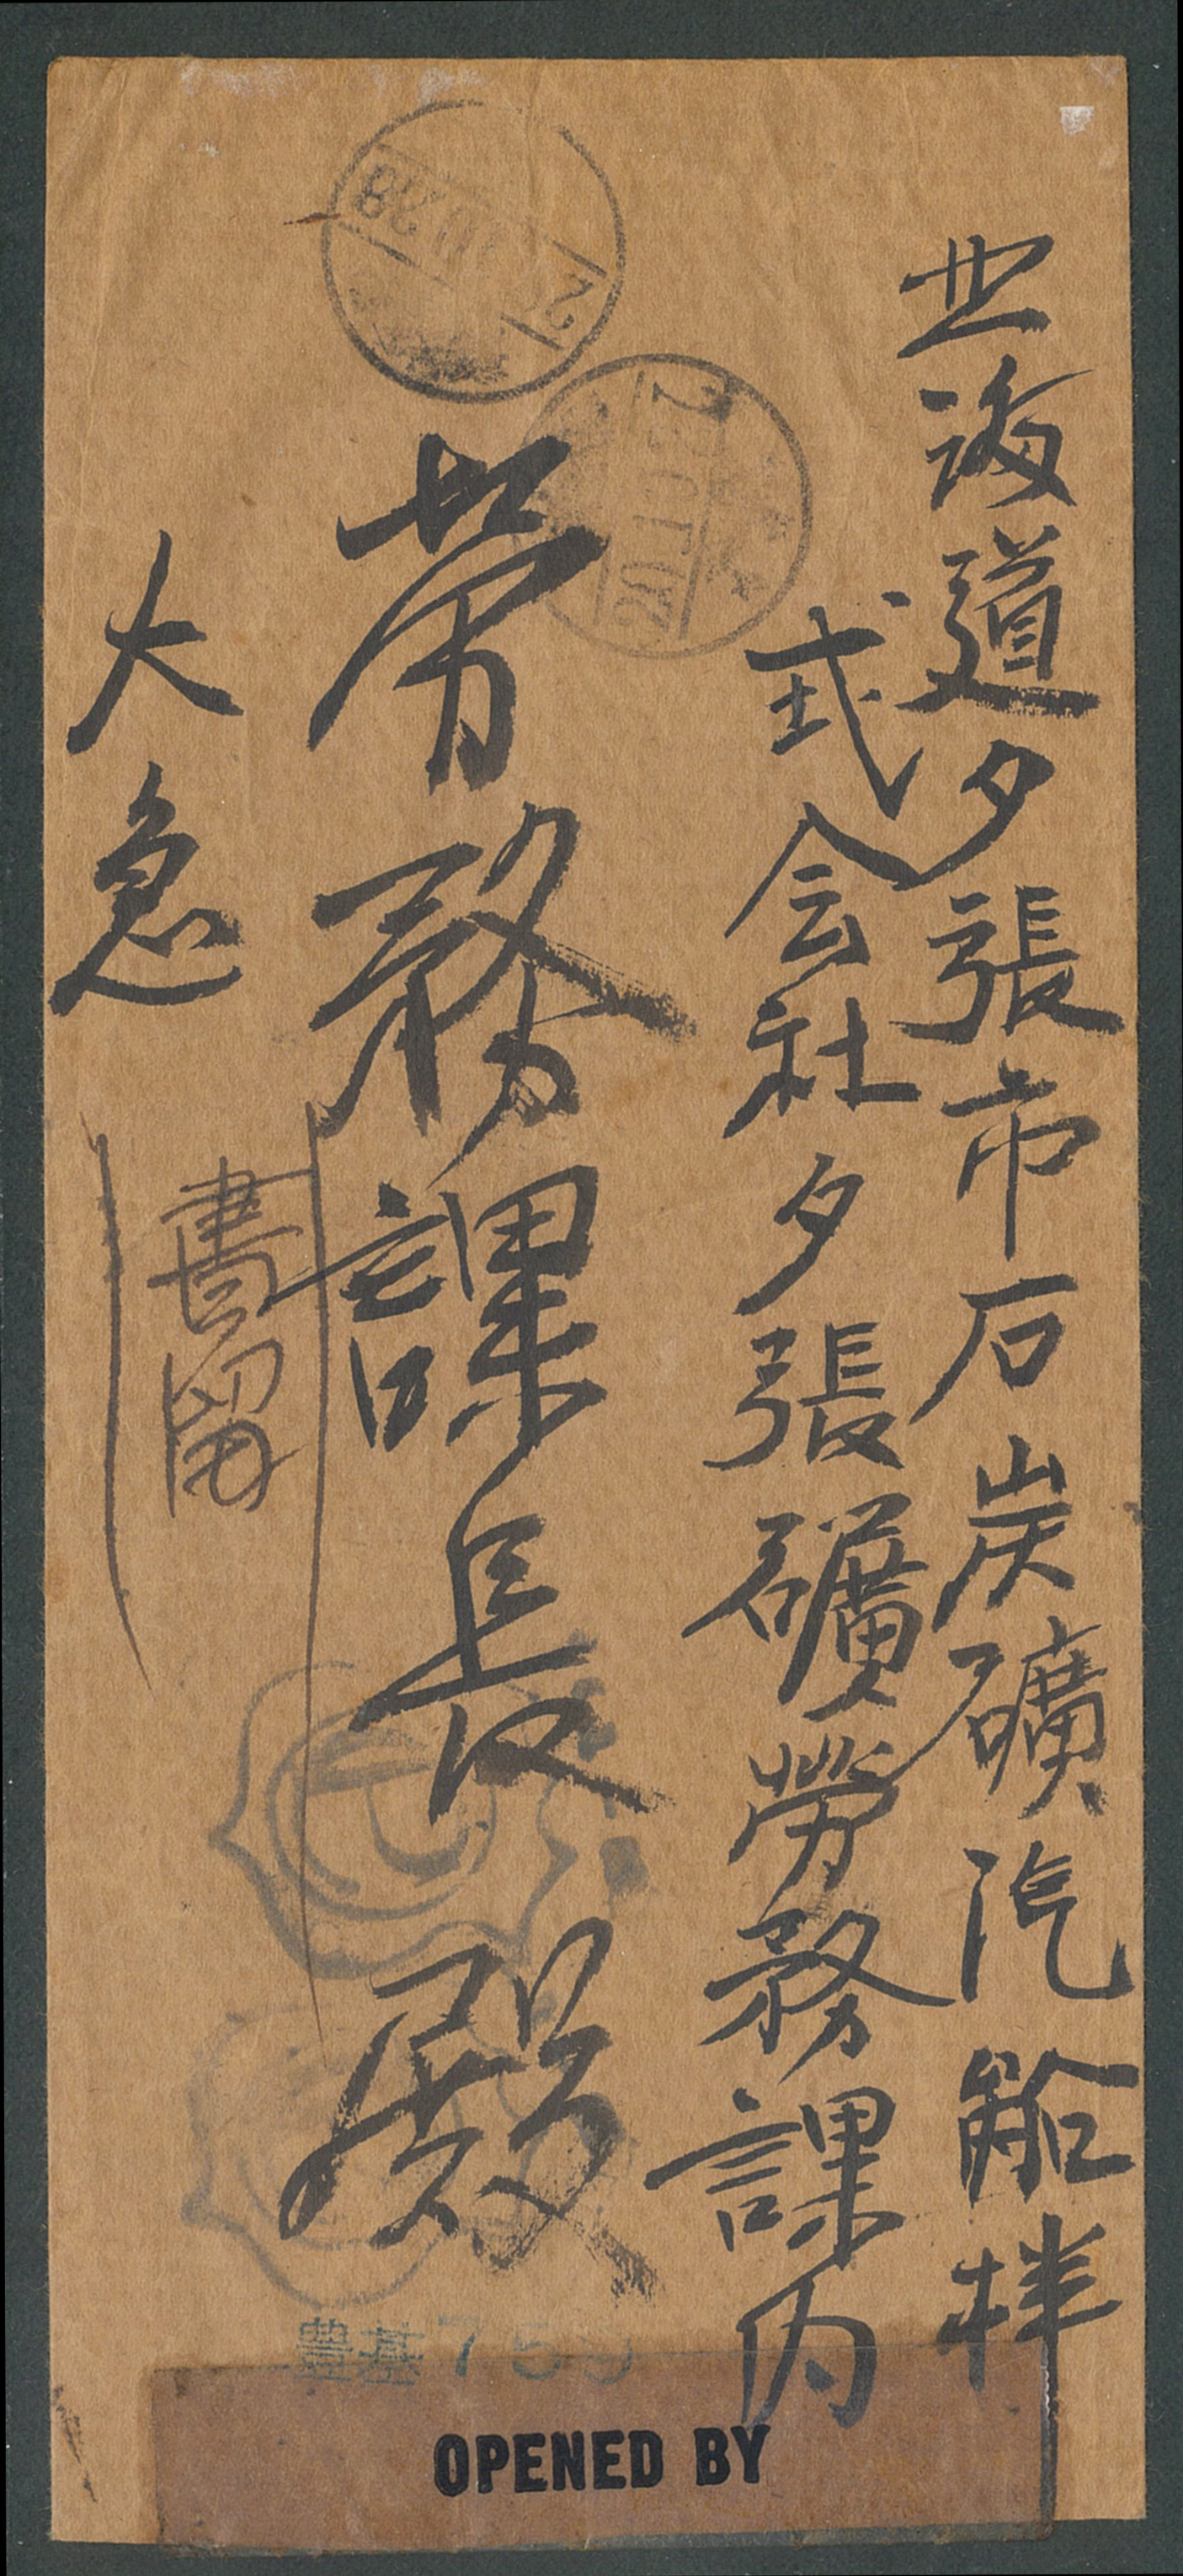 北海道夕張市石炭礦汽船株
式会社夕張礦勞務課内
労務課長殿
大急
書留
豊基759
OPENED BY